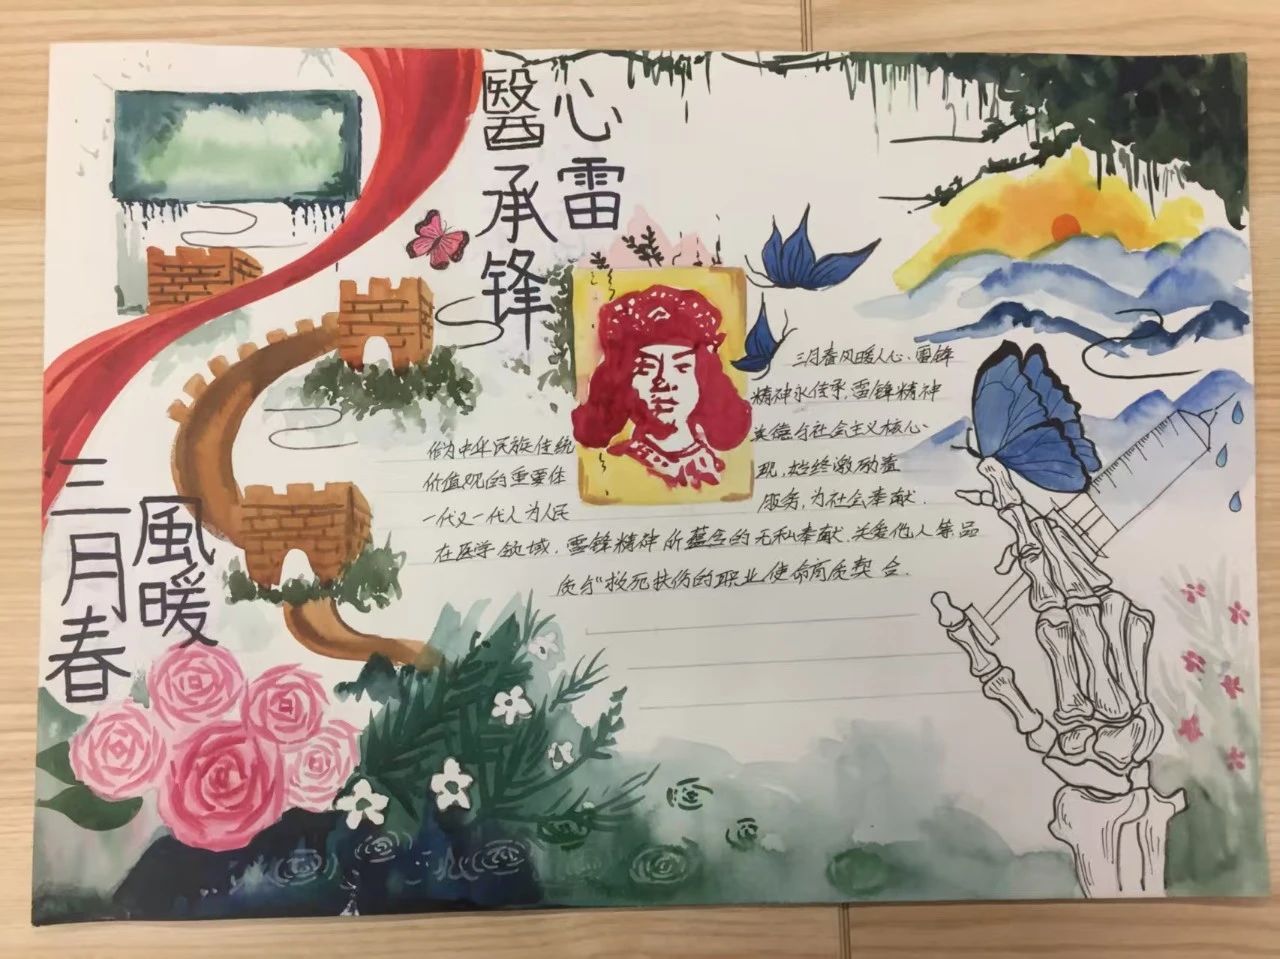 三月春
風暖
醫承锋
心雷
三月春风暖人心、雷锋
精神永传承,雷锋精神
作为中华民族传统
美德与社会主义核心
价值观的重要体
现,始终激励着
一代又一代人为人民
服务,为社会奉献.
在医学领域,雷锋精神所蕴含的无私奉献、关爱他人等品
质与"救死扶伤的职业使命高质契合.